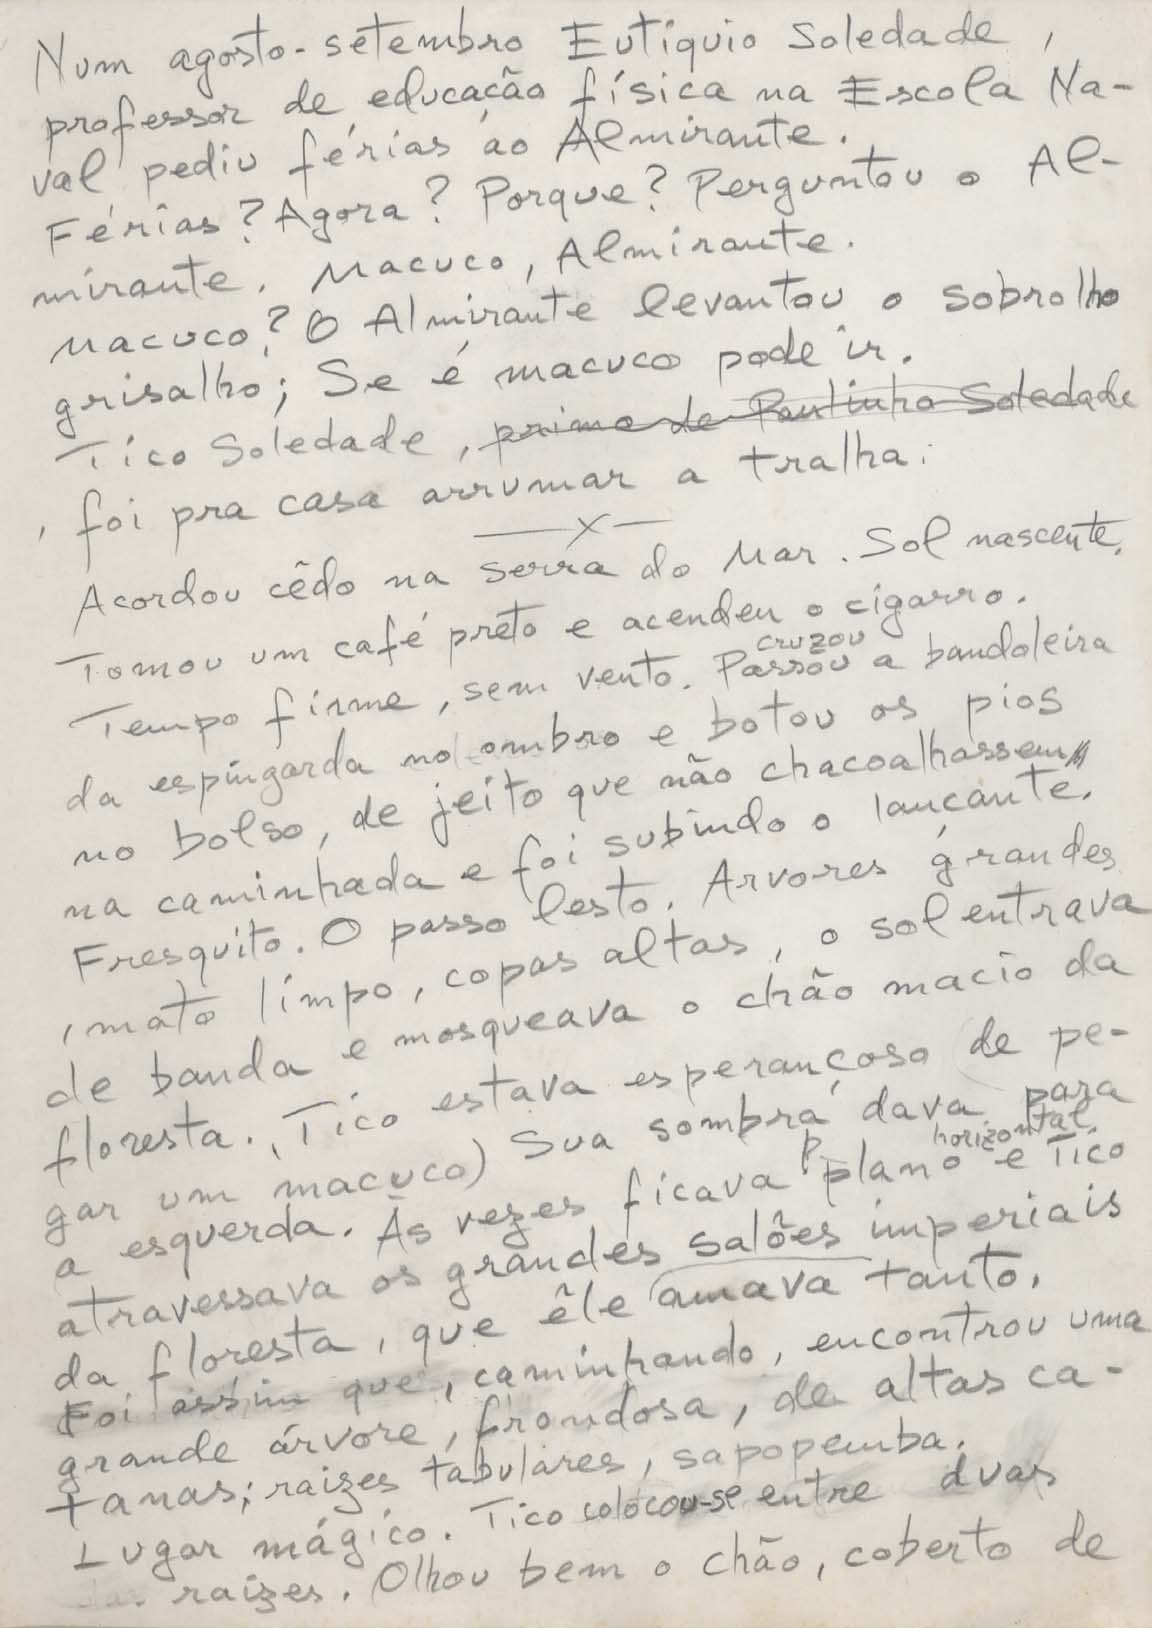 Num agosto-setembro Eutiquio Soledade,
professor de educação física na Escola Na-
val pediu férias ao Almirante.
Férias? Agora? Porque? Perguntou o Al-
mirante. Macuco, Almirante.
Macuco? O Almirante levantou o sobrolho
grisalho; Se é macuco pode ir.
Tico Soledade, primo de Paulinho Soledade
, foi pra casa arrumar a tralha.
—x—
Acordou cêdo na serra do Mar. Sol nascente.
Tomou um café preto e acendeu o cigarro.
cruzou
Tempo firme, sem vento. Passou a bandoleira
da espingarda no ombro e botou os pios
no bolso, de jeito que não chacoalhassem
na caminhada e foi subindo o lançante.
Fresquito. O passo lesto. Arvores grandes
, mato limpo, copas altas, o sol entrava
de banda e mosqueava o chão macio da
floresta. Tico estava esperançoso (de pe-
gar um macuco) Sua sombra dava para
horizontal
a esquerda. Às vezes ficava plano e Tico
atravessava os grandes salões imperiais
da floresta, que êle amava tanto.
Foi assim que, caminhando, encontrou uma
grande árvore, frondosa, de altas ca-
tanas; raizes tabulares, sapopemba.
Lugar mágico. Tico colocou-se entre duas
raizes. Olhou bem o chão, coberto de